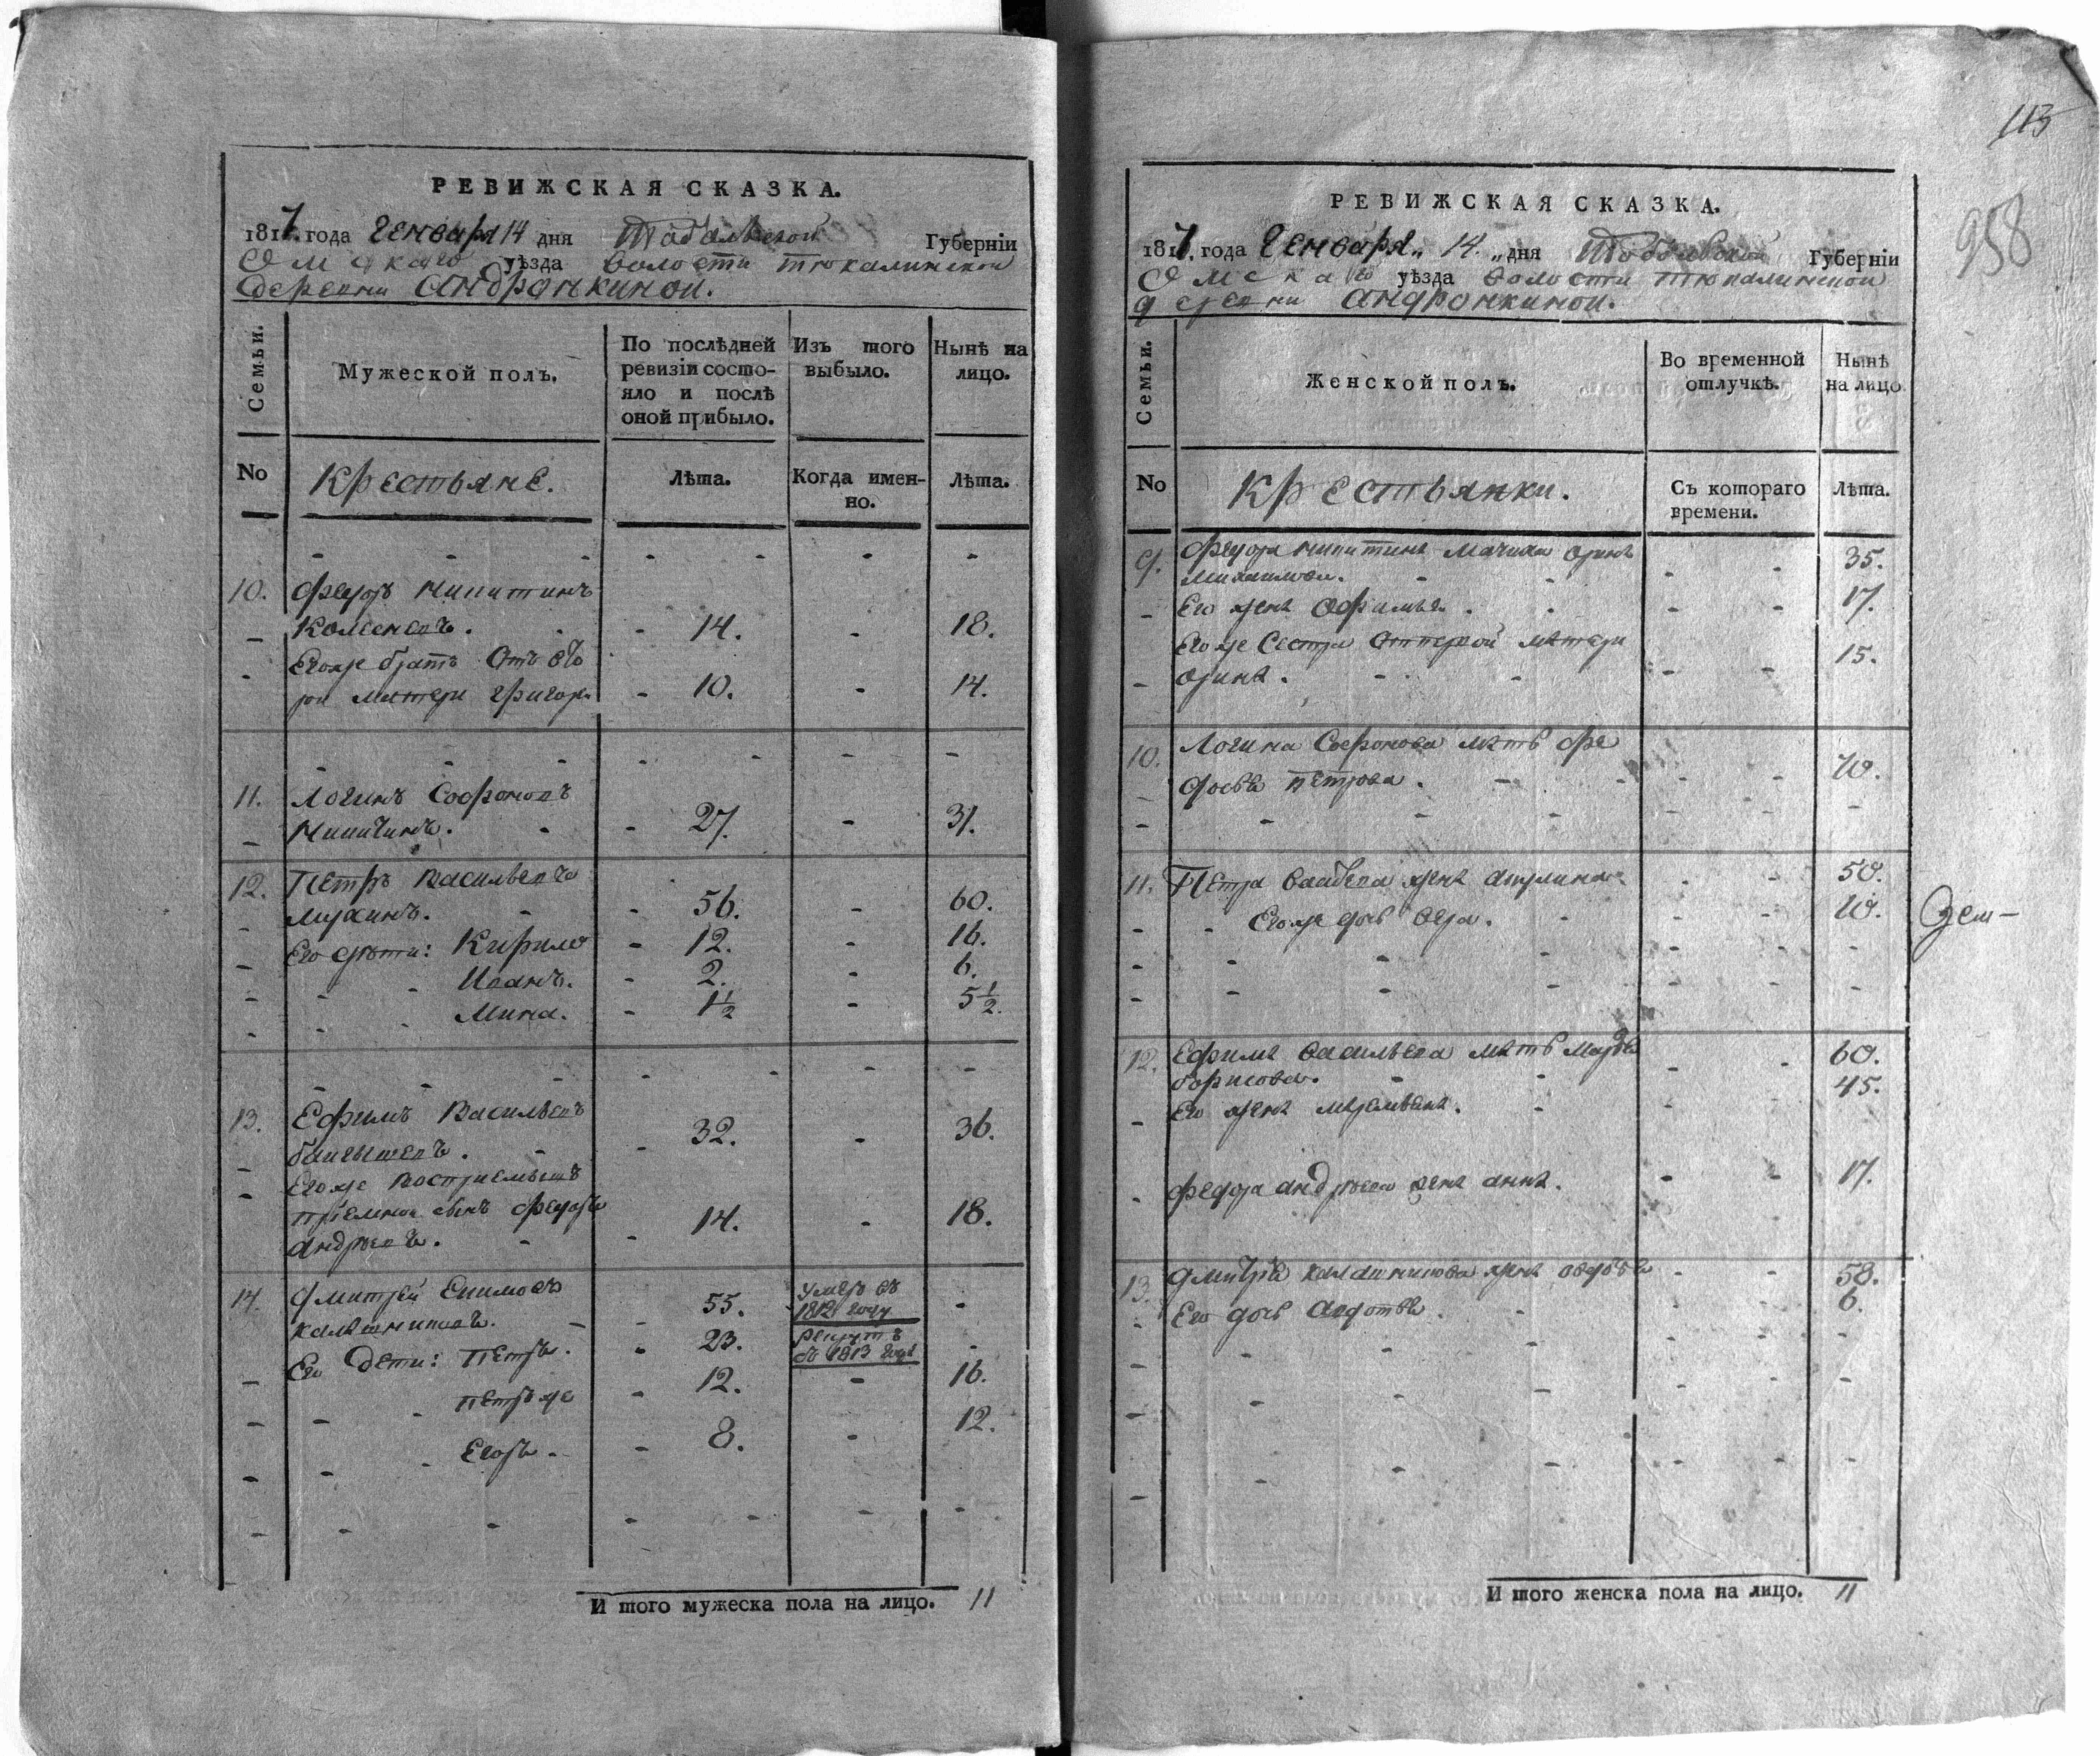 РЕВИЖСКАЯ СКАЗКА.
1817. года Генваря 14 дня Тобольской Губерніи
Омскаго уѣзда волости тюкалинской
деревни Андронкиной.
Семьи.
Мужеской полъ.
По послѣдней ревизіи состо-
яло и послѣ
оной прибыло.
Изъ того
выбыло.
Нынѣ на
лицо.
No
Крестьяне.
Лѣта.
Когда имен-
но.
Лѣта.
10. Федоръ Никитинъ
14. 18.
Егоже братъ отъ вто
рой матери григорей 10. 14.
11. Логинъ Софоновъ
27. 31.
12. Петръ Васильевъ
Мухинъ. 56. 60.
Его дѣти: Кирило 12. 16.
Иванъ. 2. 6.
Мина. 1 1/2 5 1/2.
13. Ефимъ Васильевъ
32. 36.
Егоже воспріемышъ
пріемной сынъ Федоръ
андреевъ. 14. 18.
14. Дмитрей Екимовъ
калашниковъ. 55. умеръ въ
1812 году
Его дети: Петръ. 23. рекрутъ
въ 1813 годе
петръ же 12. 16.
Егоръ. 8. 12.
И того мужеска пола на лицо. 11
113
958
РЕВИЖСКАЯ СКАЗКА.
1817. года Генваря 14. дня Тобольской Губерніи
Омскаго уѣзда волости тюкалинской
деревни андронкиной.
Семьи.
Женской полъ.
Во временной
отлучкѣ.
Нынѣ
на лицо
No
Крестьянки.
Съ котораго
времени.
Лѣта.
9. Федора никитина мачиха орина
михаилова. 35.
Его жена Офимья. 17.
Его же Сестра От первой матери
орина. 15.
10. Логина Софонова мать фе
досья петрова. 70.
11. Петра васильева жена акулина 50.
Егоже дочь вера. 10.
12. Ефима васильева мать марфа
борисова. 60.
Его жена маремьяна. 45.
Федора андреева жена анна. 17.
13. Дмитрія калашникова жена авдотья 58.
Его дочь авдотья 6.
И того женска пола на лицо. 11